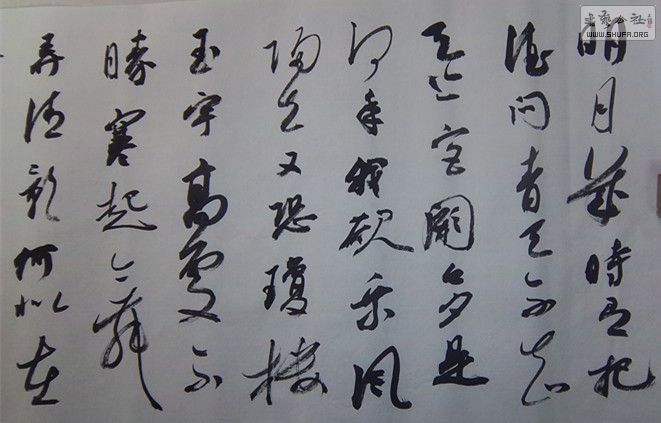 明月幾時有把
酒問青天不知
天上宮闕今夕是
何年我欲乘風
歸去又恐瓊樓
玉宇高處不
勝寒起舞
弄清影何似在
公社
WWW.SHUFA.ORG